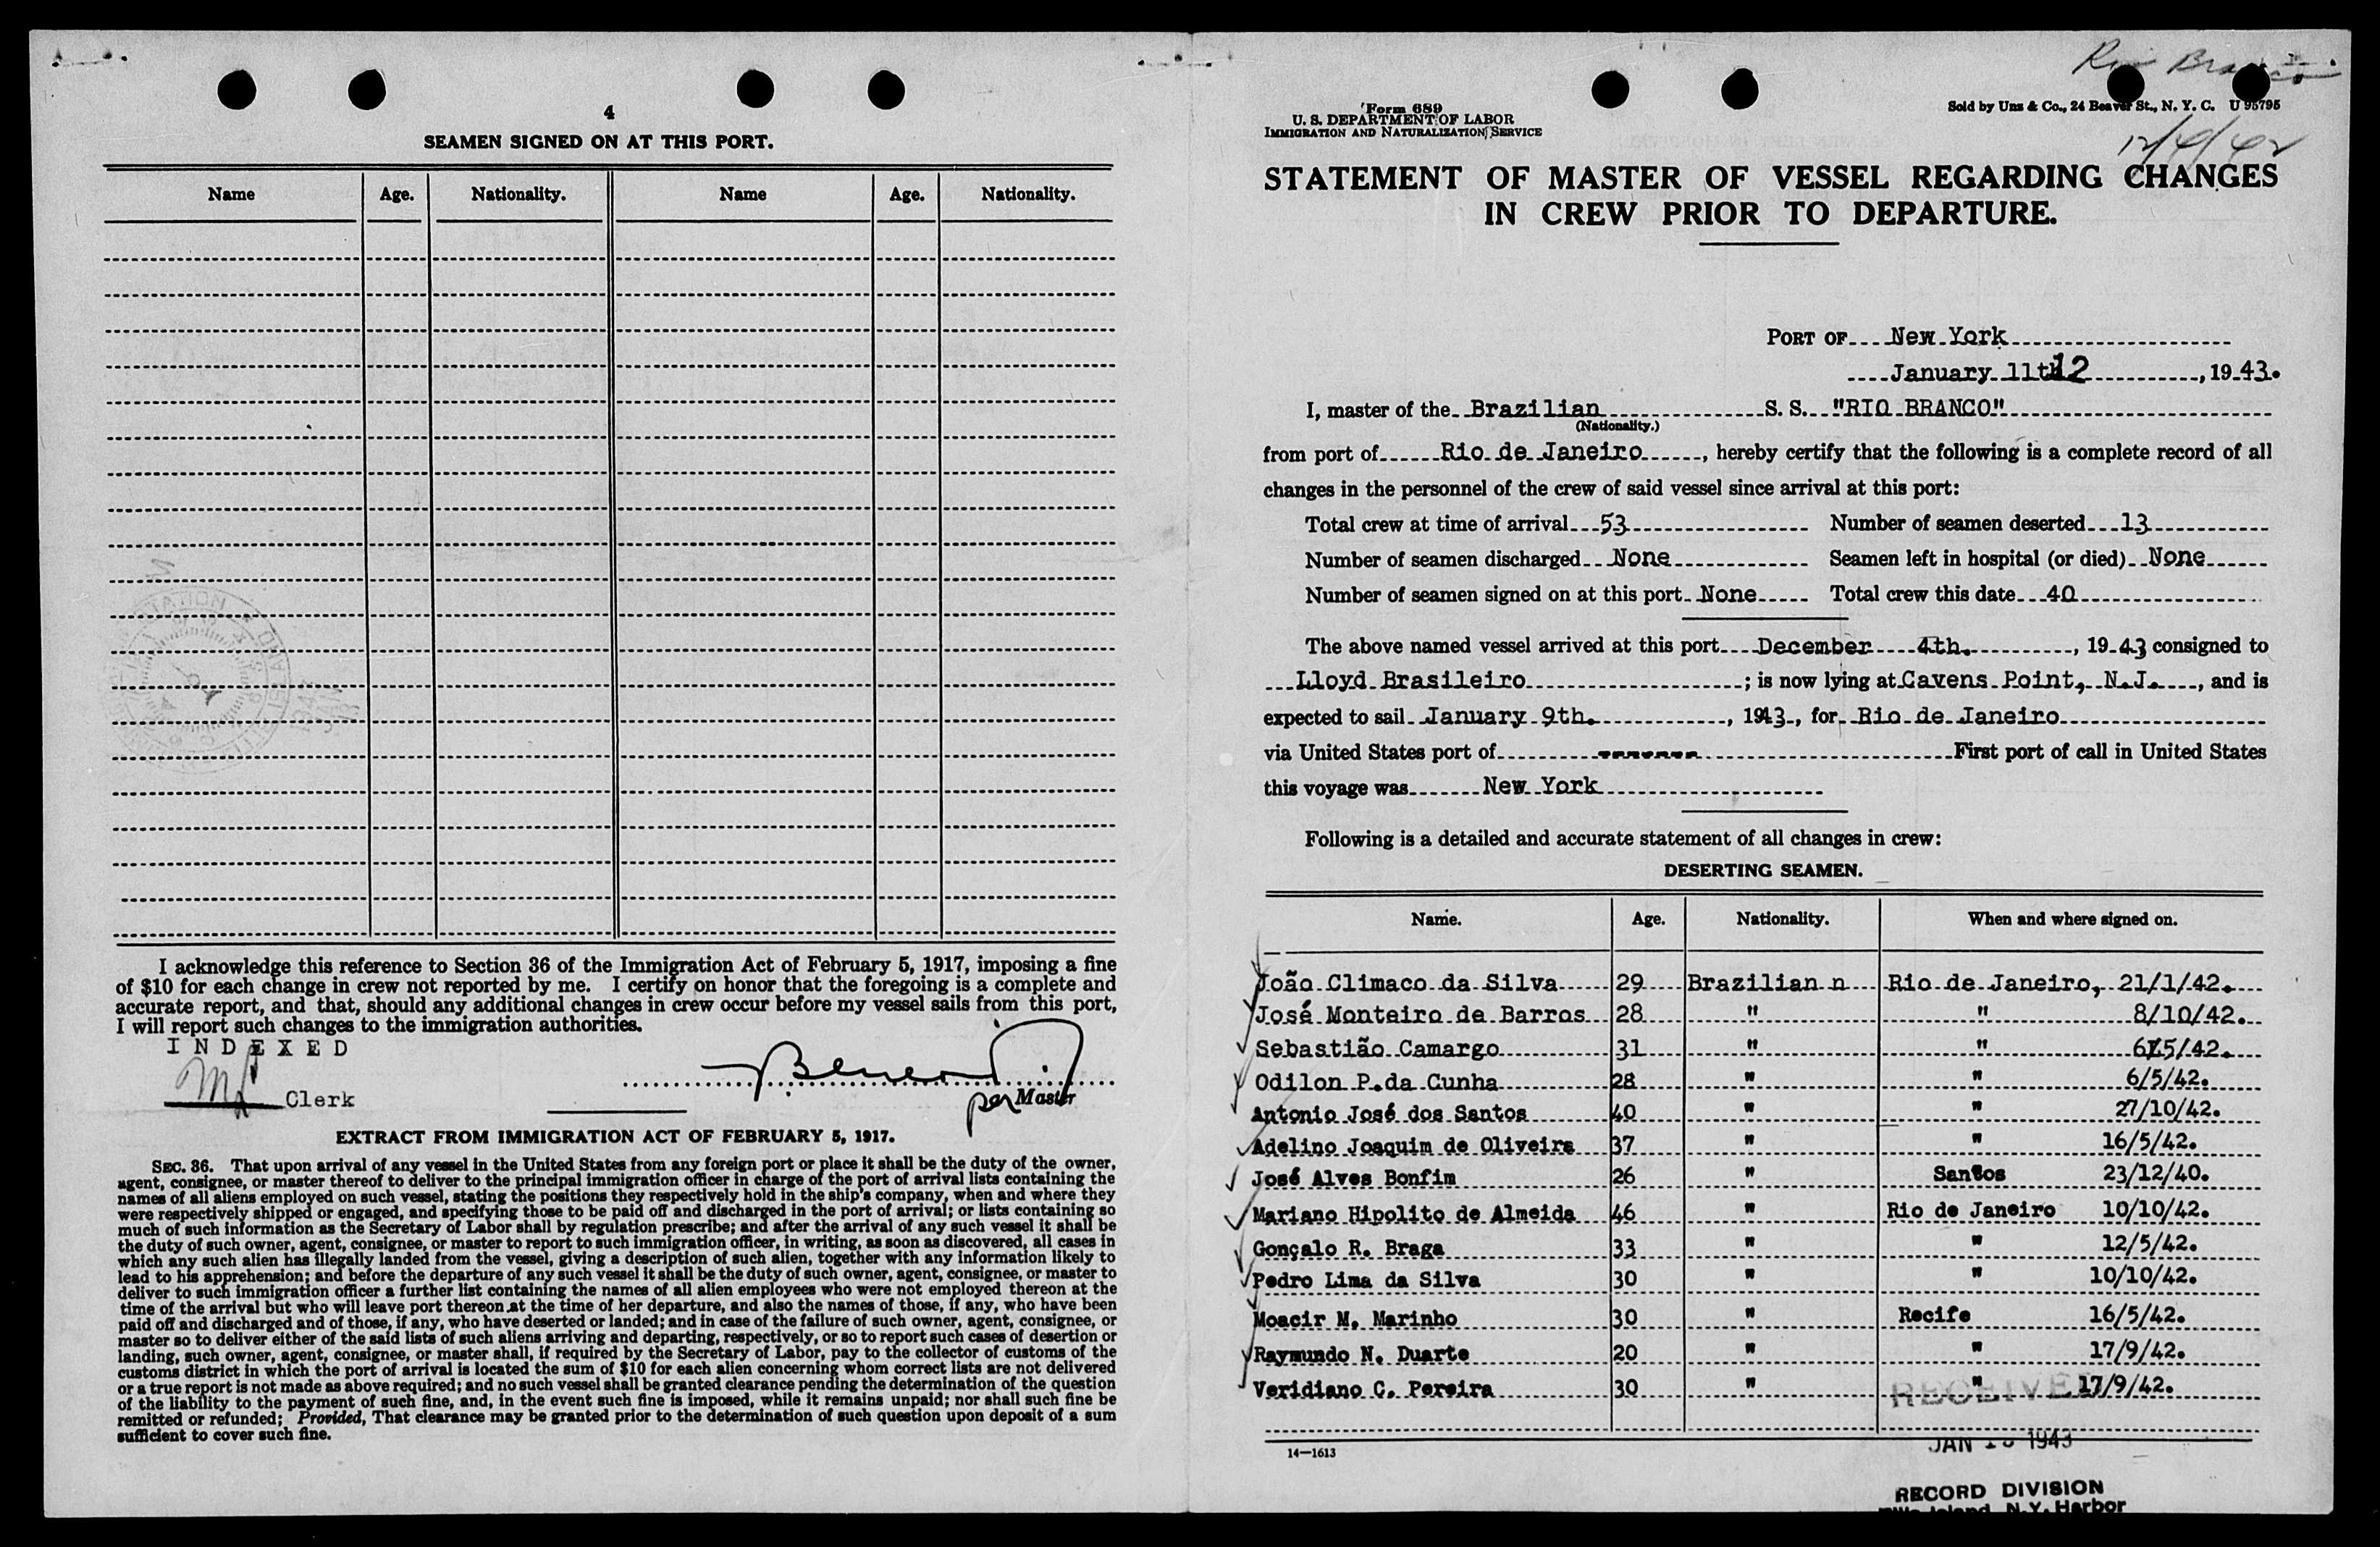 4
SEAMEN SIGNED ON AT THIS PORT.
Name Age. Nationality. Name Age. Nationality.
I acknowledge this reference to Section 36 of the Immigration Act of February 5, 1917, imposing a fine
of $10 for each change in crew not reported by me. I certify on honor that the foregoing is a complete and
accurate report, and that, should any additional changes in crew occur before my vessel sails from this port,
I will report such changes to the immigration authorities.
INDEXED
Clerk
per Master
EXTRACT FROM IMMIGRATION ACT OF FEBRUARY 5, 1917.
SEC. 36. That upon arrival of any vessel in the United States from any foreign port or place it shall be the duty of the owner,
agent, consignee, or master thereof to deliver to the principal immigration officer in charge of the port of arrival lists containing the
names of all aliens employed on such vessel, stating the positions they respectively hold in the ship's company, when and where they
were respectively shipped or engaged, and specifying those to be paid off and discharged in the port of arrival; or lists containing so
much of such information as the Secretary of Labor shall by regulation prescribe; and after the arrival of any such vessel it shall be
the duty of such owner, agent, consignee, or master to report to such immigration officer, in writing, as soon as discovered, all cases in
which any such alien has illegally landed from the vessel, giving a description of such alien, together with any information likely to
lead to his apprehension; and before the departure of any such vessel it shall be the duty of such owner, agent, consignee, or master to
deliver to such immigration officer a further list containing the names of all alien employees who were not employed thereon at the
time of the arrival but who will leave port thereon at the time of her departure, and also the names of those, if any, who have been
paid off and discharged and of those, if any, who have deserted or landed; and in case of the failure of such owner, agent, consignee, or
master so to deliver either of the said lists of such aliens arriving and departing, respectively, or so to report such cases of desertion or
landing, such owner, agent, consignee, or master shall, if required by the Secretary of Labor, pay to the collector of customs of the
customs district in which the port of arrival is located the sum of $10 for each alien concerning whom correct lists are not delivered
or a true report is not made as above required; and no such vessel shall be granted clearance pending the determination of the question
of the liability to the payment of such fine, and, in the event such fine is imposed, while it remains unpaid; nor shall such fine be
remitted or refunded; Provided, That clearance may be granted prior to the determination of such question upon deposit of a sum
sufficient to cover such fine.
Rio Branco
Form 689
U. S. DEPARTMENT OF LABOR
IMMIGRATION AND NATURALIZATION SERVICE
Sold by Unz & Co., 24 Beaver St., N. Y. C. U 95795
12/4/42
STATEMENT OF MASTER OF VESSEL REGARDING CHANGES
IN CREW PRIOR TO DEPARTURE.
PORT OF New York
January 11th 12, 1943.
I, master of the Brazilian S. S. "RIO BRANCO"
(Nationality.)
from port of Rio de Janeiro, hereby certify that the following is a complete record of all
changes in the personnel of the crew of said vessel since arrival at this port:
Total crew at time of arrival 53 Number of seamen deserted 13
Number of seamen discharged None Seamen left in hospital (or died) None
Number of seamen signed on at this port None Total crew this date 40
The above named vessel arrived at this port December 4th., 1943 consigned to
Lloyd Brasileiro; is now lying at Cavens Point, N.J., and is
expected to sail January 9th., 1943, for Rio de Janeiro
via United States port of ------- First port of call in United States
this voyage was New York
Following is a detailed and accurate statement of all changes in crew:
DESERTING SEAMEN.
Name. Age. Nationality. When and where signed on.
João Climaco da Silva 29 Brazilian n Rio de Janeiro, 21/1/42.
José Monteiro de Barros 28 " " 8/10/42.
Sebastião Camargo 31 " " 6/5/42.
Odilon P.da Cunha 28 " " 6/5/42.
Antonio José dos Santos 40 " " 27/10/42.
Adelino Joaquim de Oliveira 37 " " 16/5/42.
José Alves Bonfim 26 " Santos 23/12/40.
Mariano Hipolito de Almeida 46 " Rio de Janeiro 10/10/42.
Gonçalo R. Braga 33 " " 12/5/42.
Pedro Lima da Silva 30 " " 10/10/42.
Moacir M. Marinho 30 " Recife 16/5/42.
Raymundo N. Duarte 20 " " 17/9/42.
Veridiano C. Pereira 30 " " 17/9/42.
RECEIVED
14—1613
JAN 1943
RECORD DIVISION
Island N.Y. Harbor